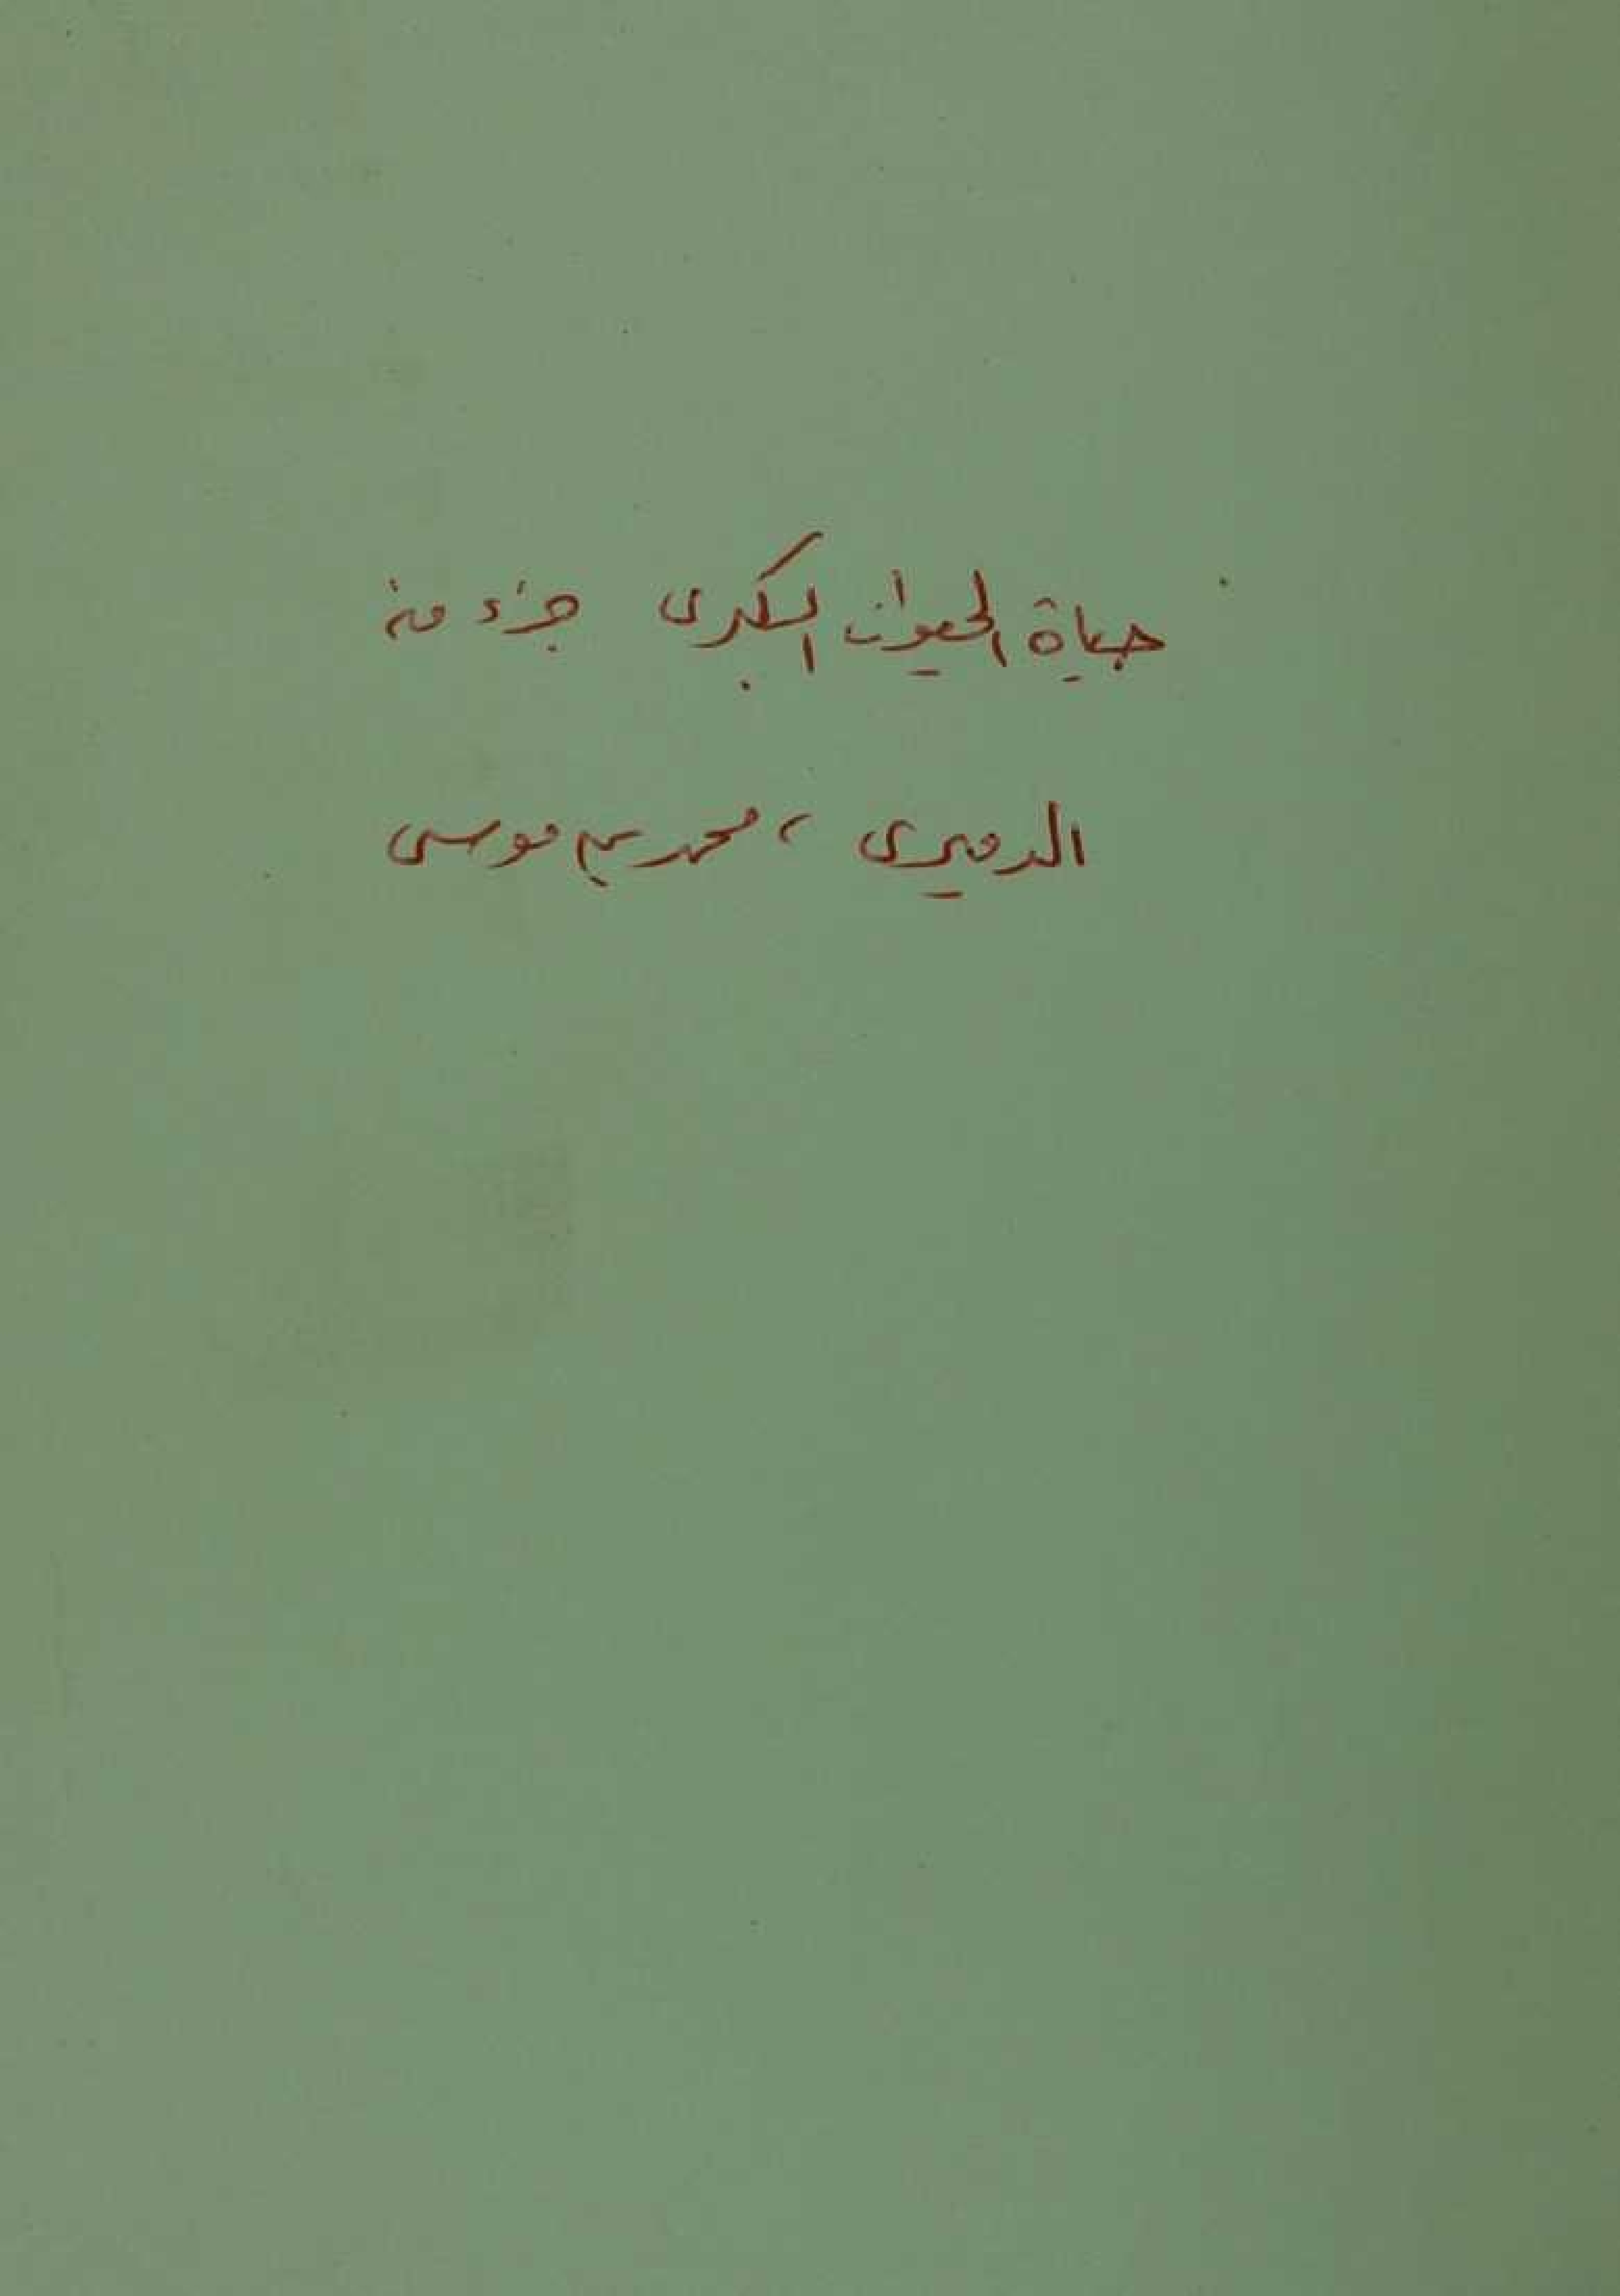 حياة الحيوان الكبرى جزء منه
الدميري ، محمد بن موسى